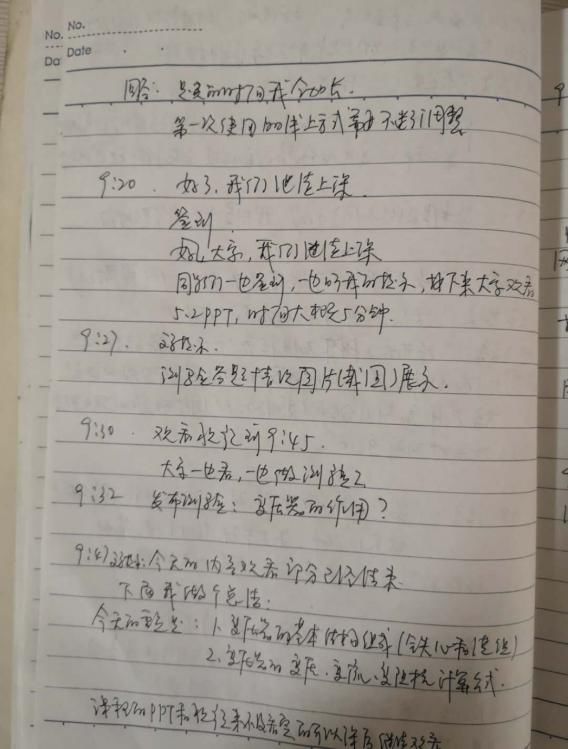 No.
No.
Date
Da
回答:是更的时间我会加长.
第一次使用的线上方式等再不断调整
9:20. 好了,我们继续上课
签到
好,大家,我们继续上课
同学们一边签到,一边听我的提示,接下来大家观看
5.2PPT,时间大概是5分钟.
9:27. 文字提示
测验答题情况图片(截图)展示.
9:30. 观看视频到9:45.
大家一边看,一边做测验2
9:32 发布测验:变压器的作用?
9:47 文字提示:今天的内容观看部分已经结束
下面我做个总结:
今天的重点是:1.变压器的基本结构组成(铁心和绕组)
2.变压器的变压、变流、变阻抗计算公式.
课程的PPT和视频来不及看完的可以课后继续观看